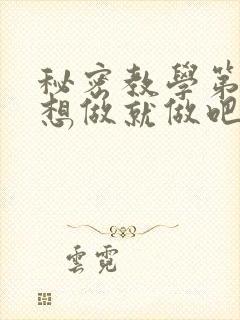 秘密教學第
想做就做吧
雲霓